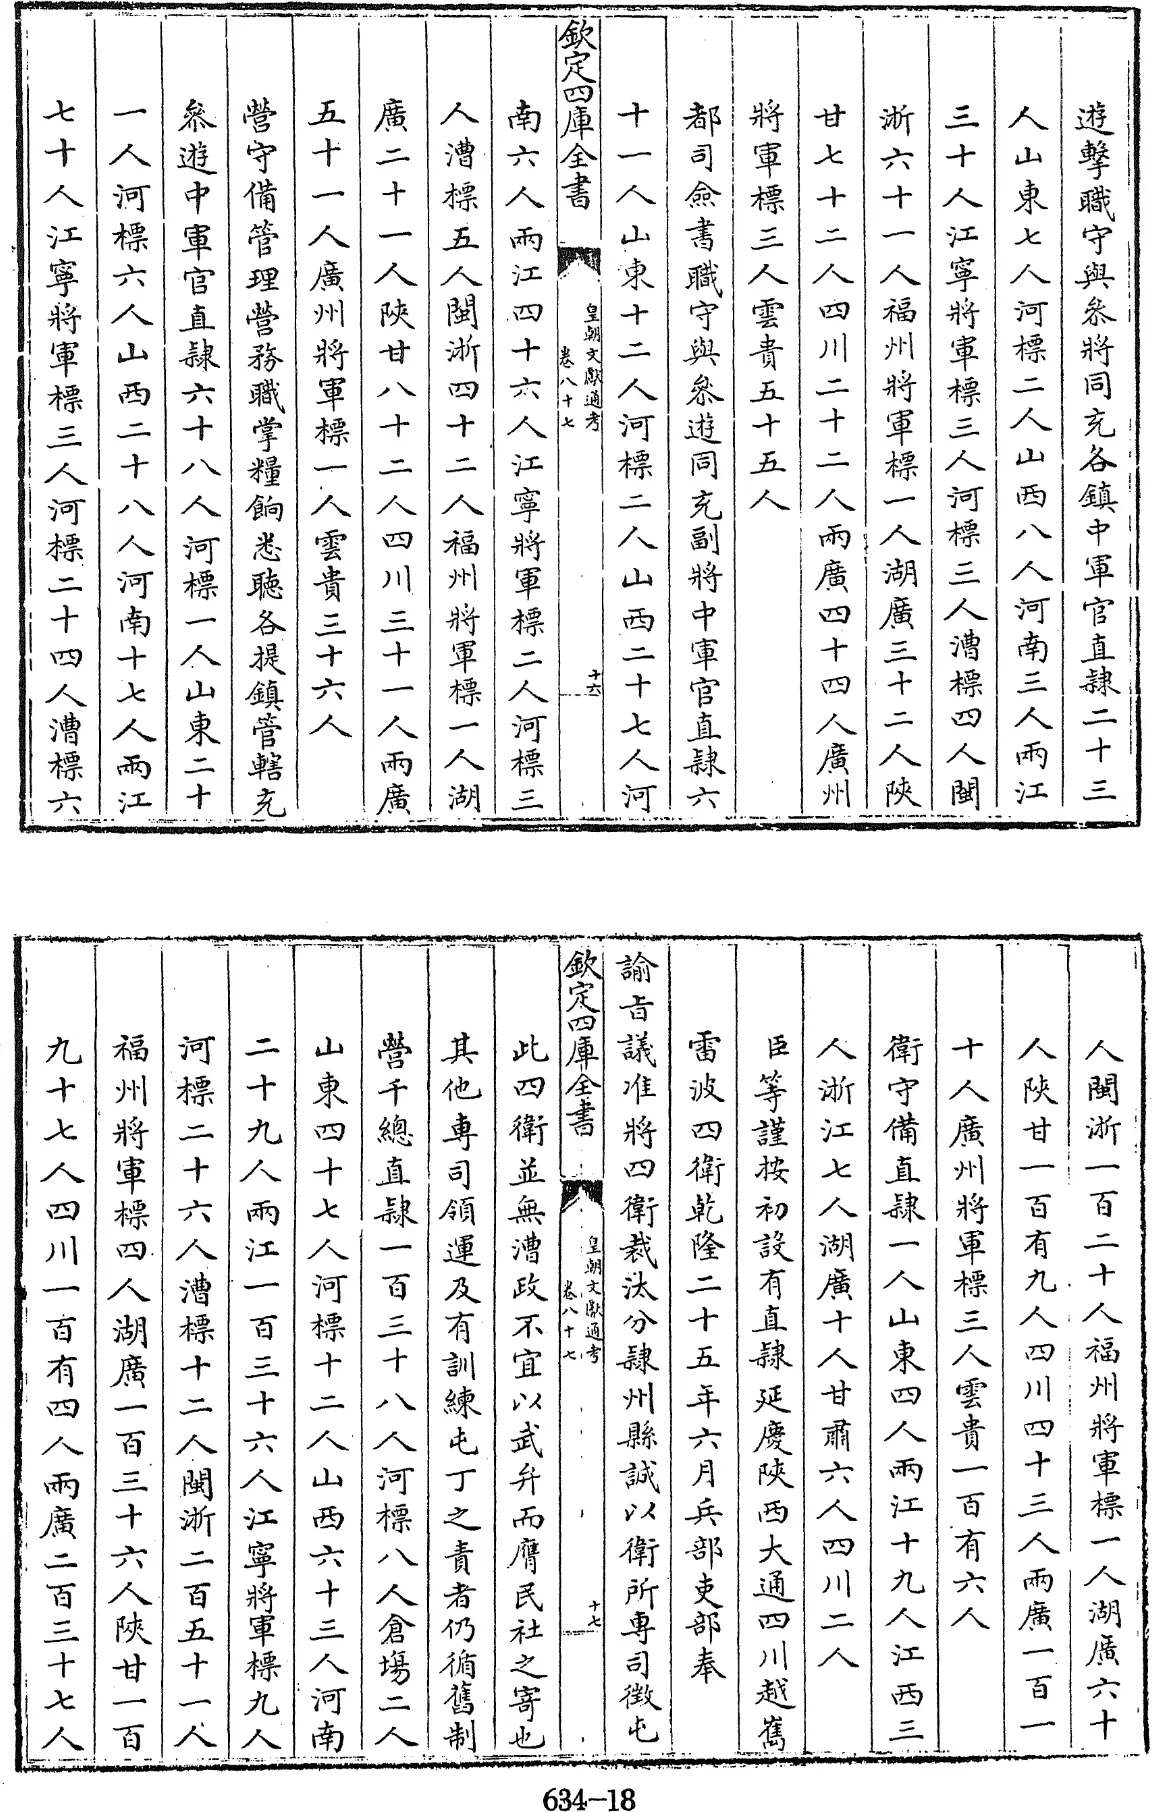 遊擊職守與叅將同充各鎮中軍官直隸二十三
人山東七人河標二人山西八人河南三人兩江
三十人江寧將軍標三人河標三人漕標四人閩
浙六十一人福州將軍標一人湖廣三十二人陝
甘七十二人四川二十二人兩廣四十四人廣州
將軍標三人雲貴五十五人
都司僉書職守與叅遊同充副將中軍官直隸六
十一人山東十二人河標二人山西二十七人河
欽定四庫全書
皇朝文獻通考
卷八十七
十六
南六人兩江四十六人江寧將軍標二人河標三
人漕標五人閩浙四十二人福州將軍標一人湖
廣二十一人陝甘八十二人四川三十一人兩廣
五十一人廣州將軍標一人雲貴三十六人
營守備管理營務職掌糧餉悉聽各提鎮管轄充
叅遊中軍官直隸六十八人河標一人山東二十
一人河標六人山西二十八人河南十七人兩江
七十人江寧將軍標三人河標二十四人漕標六
人閩浙一百二十人福州將軍標一人湖廣六十
人陝甘一百有九人四川四十三人兩廣一百一
十人廣州將軍標三人雲貴一百有六人
衛守備直隸一人山東四人兩江十九人江西三
人浙江七人湖廣十人甘肅六人四川二人
臣等謹按初設有直隸延慶陝西大通四川越嶲
雷波四衛乾隆二十五年六月兵部吏部奉
諭旨議准將四衛裁汰分隸州縣誠以衛所專司徵屯
欽定四庫全書
皇朝文獻通考
卷八十七
十七
此四衛並無漕政不宜以武弁而膺民社之寄也
其他專司領運及有訓練屯丁之責者仍循舊制
營千總直隸一百三十八人河標八人倉場二人
山東四十七人河標十二人山西六十三人河南
二十九人兩江一百三十六人江寧將軍標九人
河標二十六人漕標十二人閩浙二百五十一人
福州將軍標四人湖廣一百三十六人陝甘一百
九十七人四川一百有四人兩廣二百三十七人
634-18